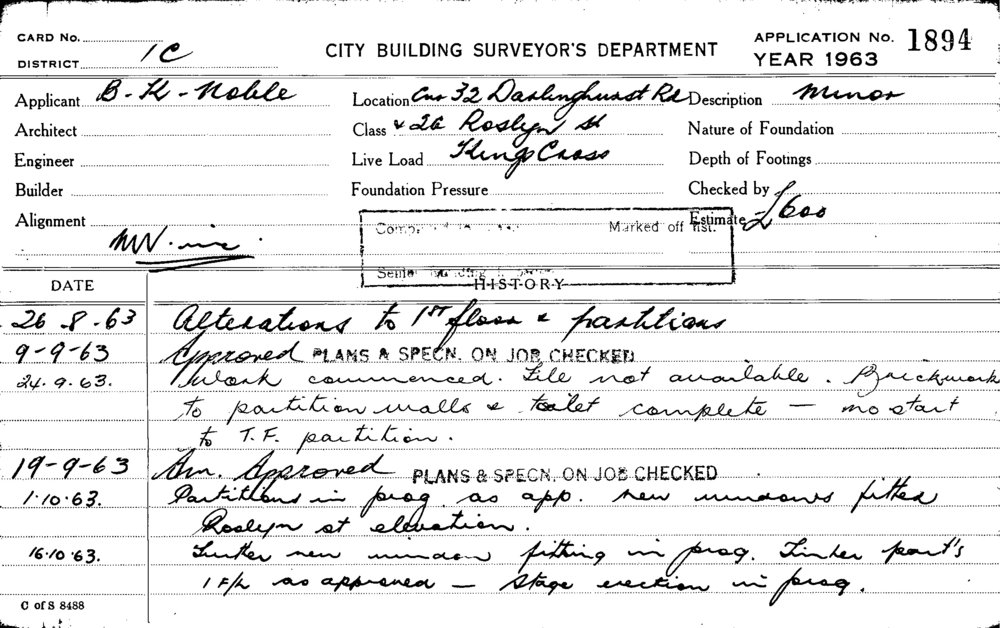 CARD No.
DISTRICT 1C
CITY BUILDING SURVEYOR'S DEPARTMENT
APPLICATION No. 1894
YEAR 1963
Applicant B. K. Noble
Location Cnr 32 Darlinghurst Rd
Description Minor
Architect
Class & 2A Roslyn St
Nature of Foundation
Engineer
Live Load Kings Cross
Depth of Footings
Builder
Foundation Pressure
Checked by
Alignment
Estimate £600
Marked off list.
Senior
DATE
HISTORY
26.8.63 Alterations to 1ST floor & partitions
9-9-63 Approved PLANS & SPECN. ON JOB CHECKED
24.9.63. Work commenced. File not available. Brickwork
to partition walls & toilet complete — no start
to T.F. partition.
19-9-63 Am. Approved PLANS & SPECN. ON JOB CHECKED
1.10.63. Partitions in prog as app. new windows fitted
Roslyn st elevation.
16.10.63. Further new window fitting in prog. Timber part's
1 F/L as approved — Stage erection in prog.
C of S 8488